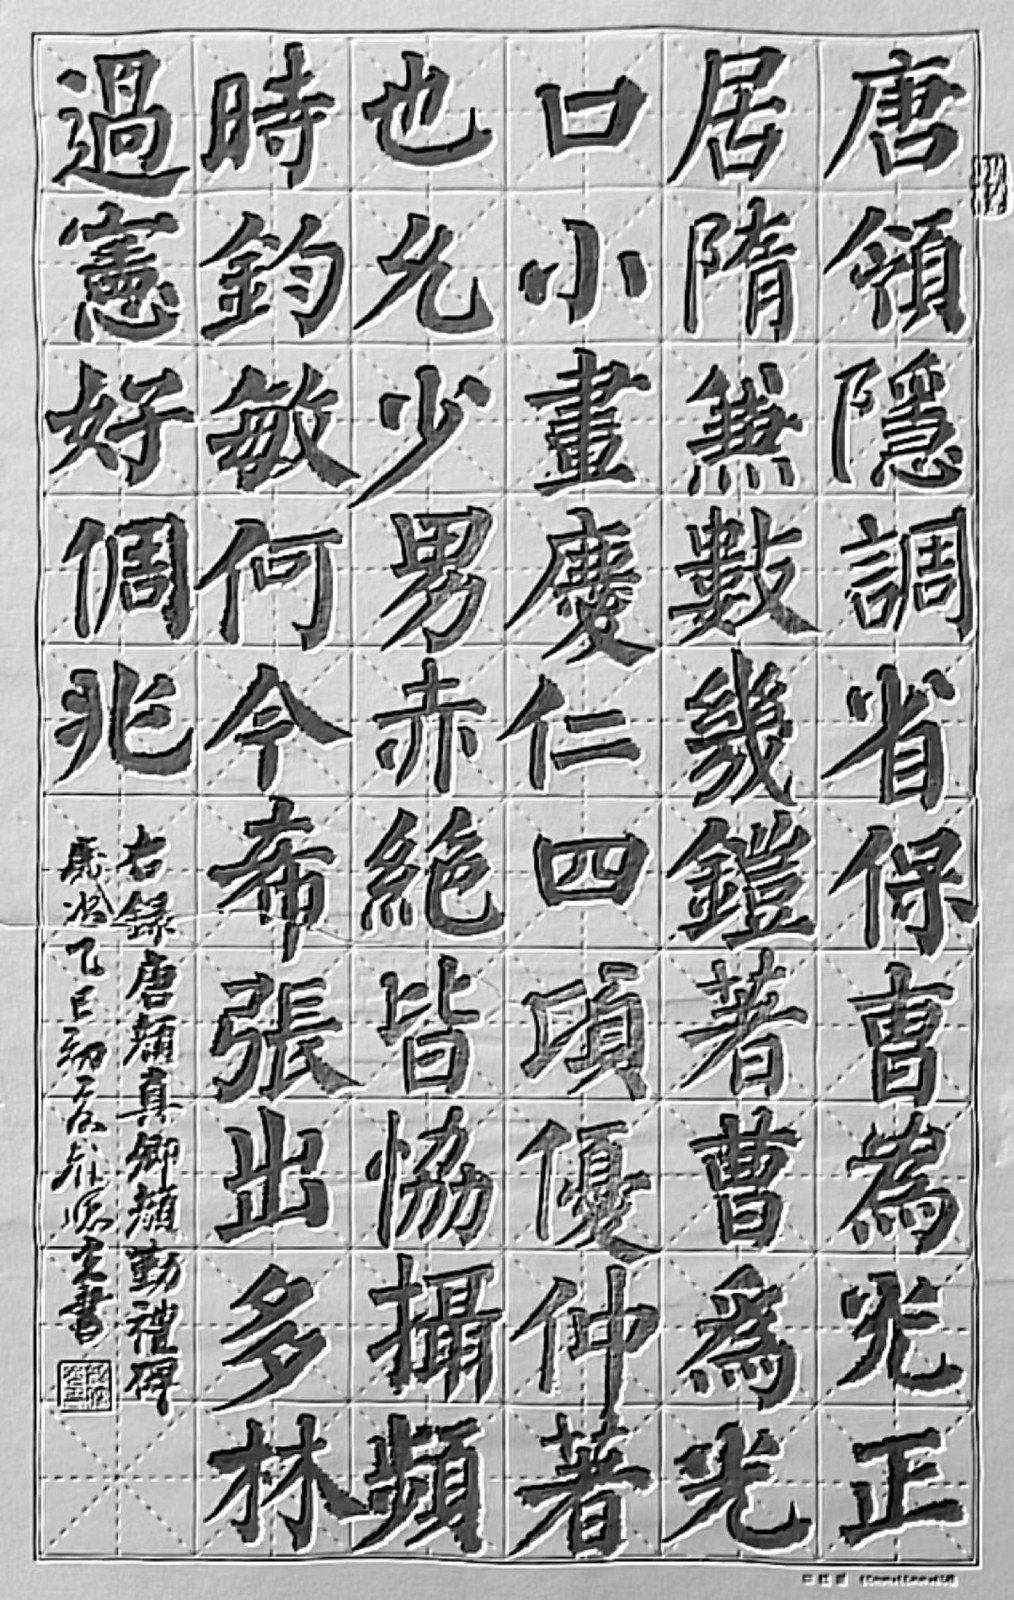 唐領隱調省保曺為光正
居隋無數幾鎧著曹為光
口小畫慶仁四頭優仲著
也允少男赤絕皆恊攝頻
時鈞敏何今希張出多林
過憲好倜兆
右録唐顔真卿顔勤禮碑
歲次乙巳初夏
書